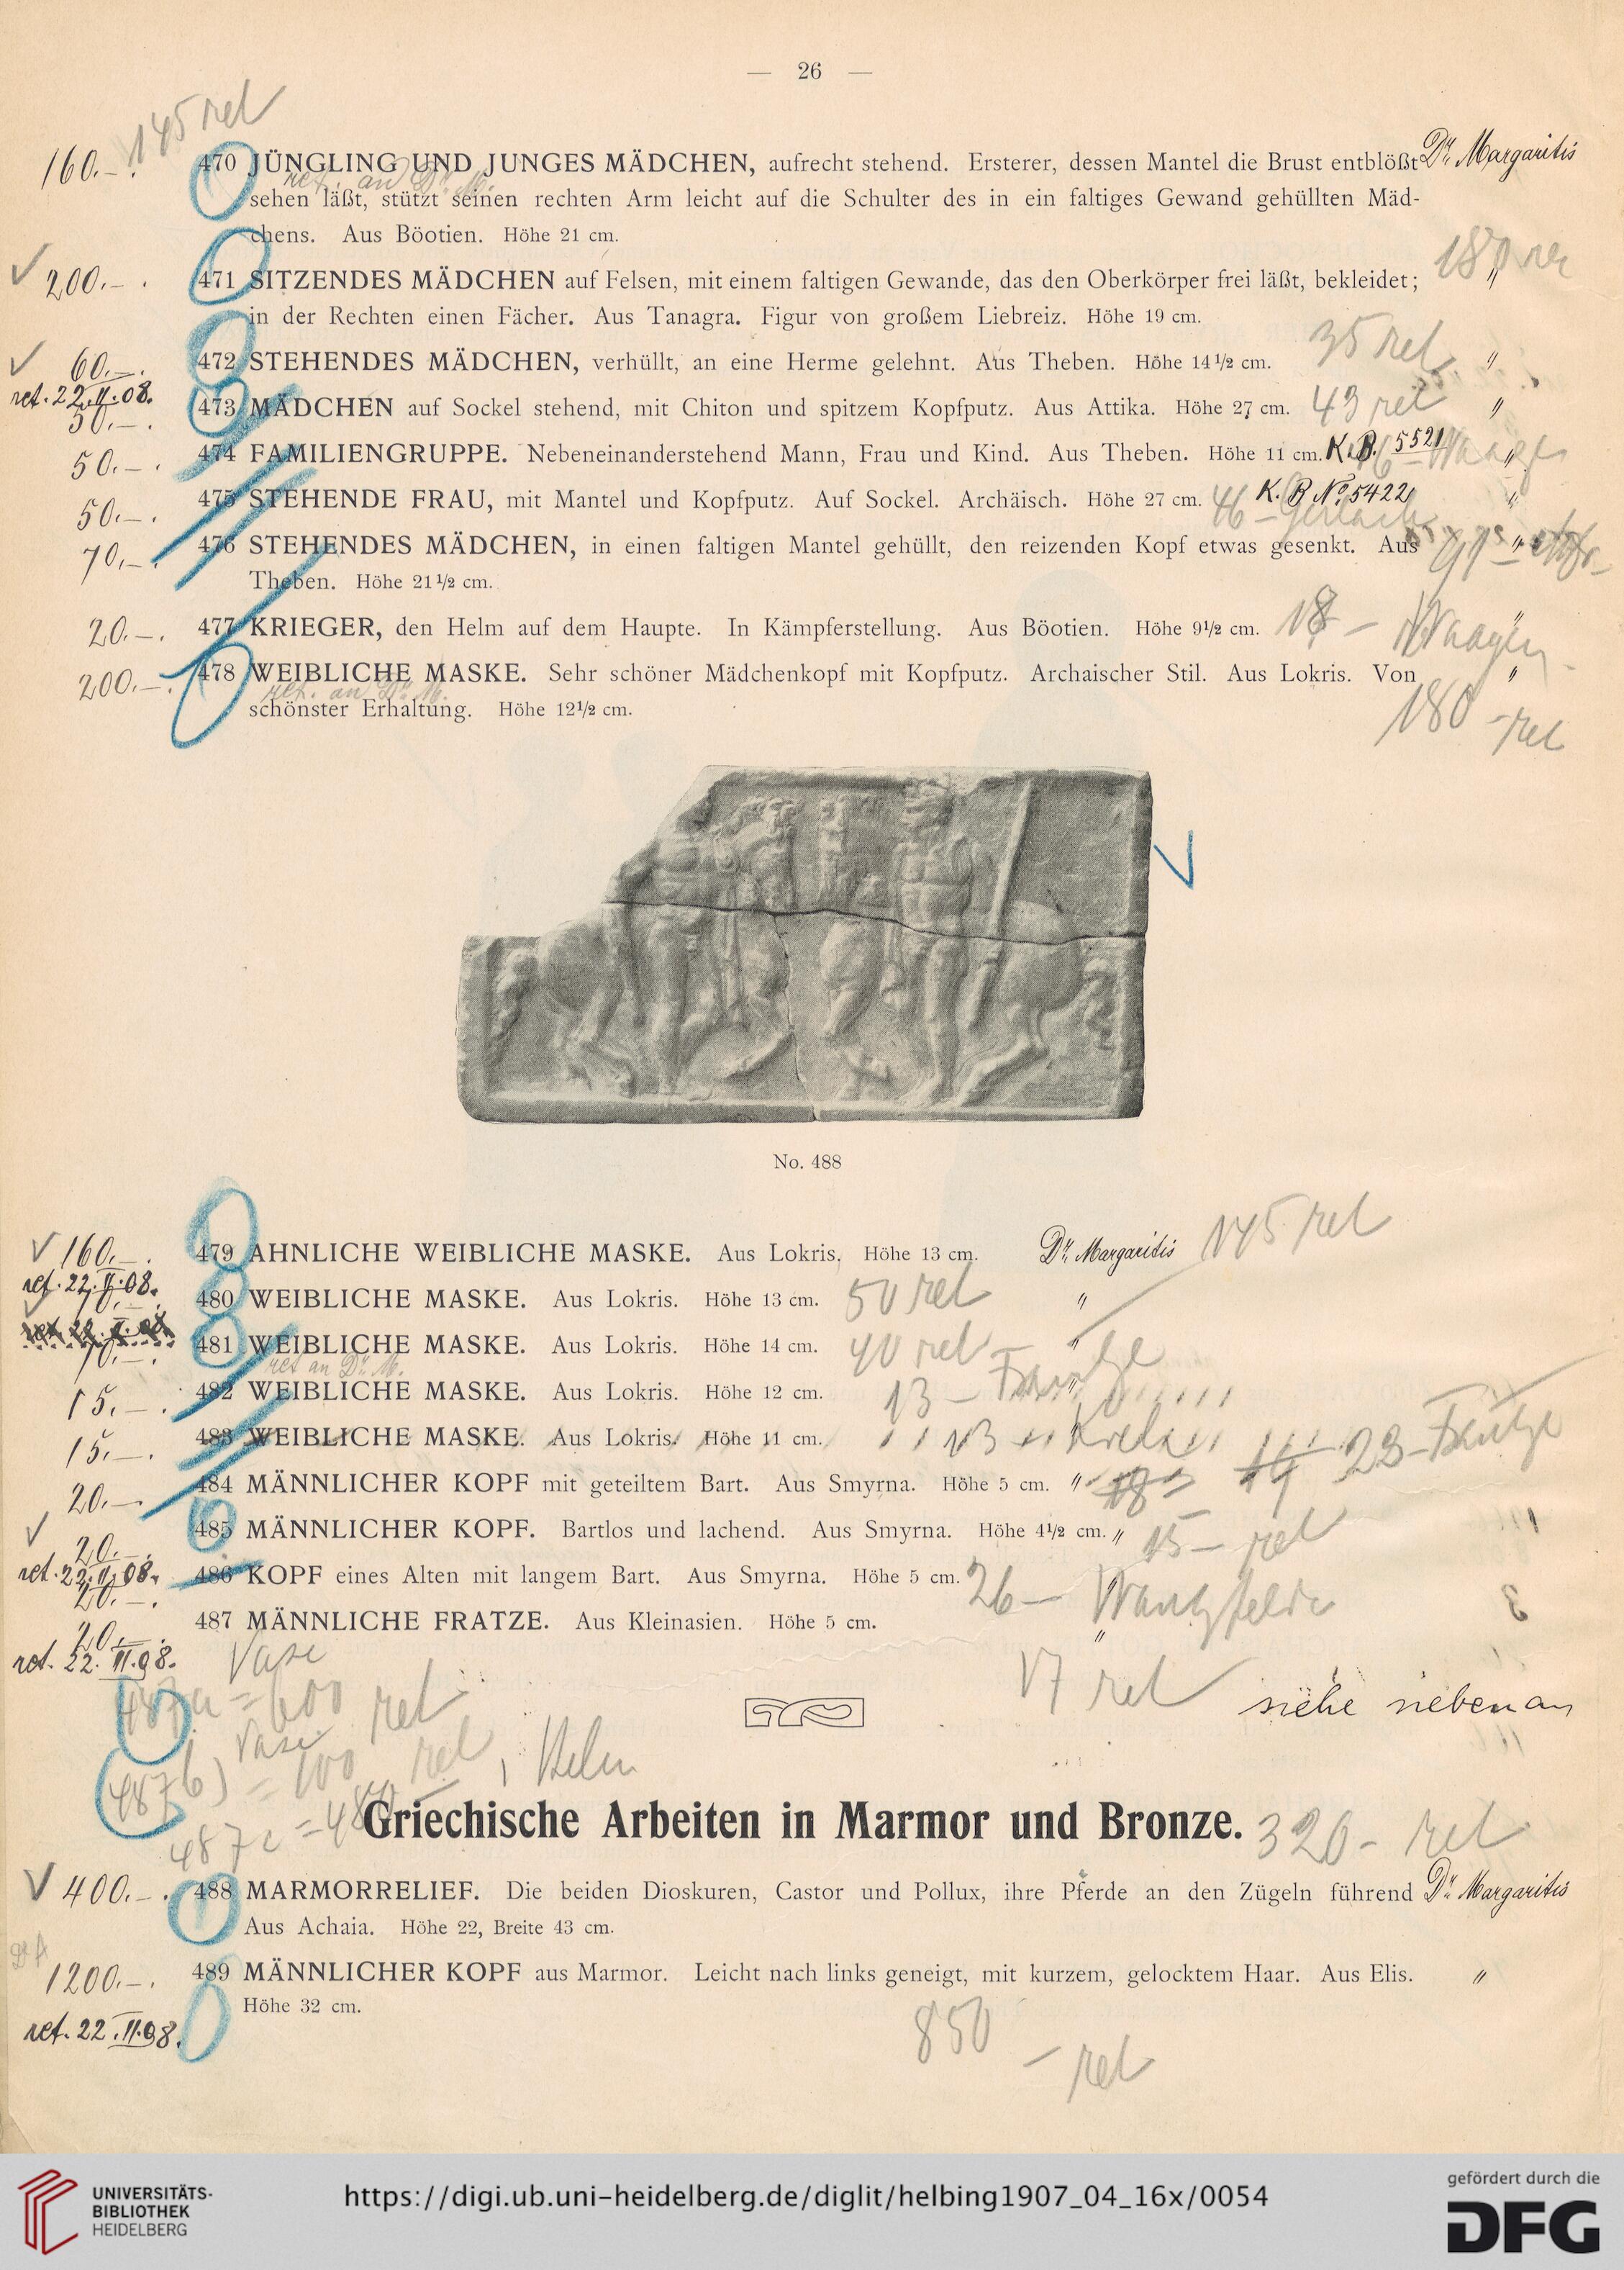 — 26 —
145 ret
160.— 470 JÜNGLING UND JUNGES MÄDCHEN, aufrecht stehend. Ersterer, dessen Mantel die Brust entblößt Dr. Margaritis
ret. an Dr. M.
sehen läßt, stützt seinen rechten Arm leicht auf die Schulter des in ein faltiges Gewand gehüllten Mäd-
chens. Aus Böotien. Höhe 21 cm.
200.— 471 SITZENDES MÄDCHEN auf Felsen, mit einem faltigen Gewande, das den Oberkörper frei läßt, bekleidet; "
in der Rechten einen Fächer. Aus Tanagra. Figur von großem Liebreiz. Höhe 19 cm.
60.— 472 STEHENDES MÄDCHEN, verhüllt, an eine Herme gelehnt. Aus Theben. Höhe 14½ cm. 35 ret "
ret. 22.II.08.
50.— 473 MÄDCHEN auf Sockel stehend, mit Chiton und spitzem Kopfputz. Aus Attika. Höhe 27 cm. 43 ret "
50.— 474 FAMILIENGRUPPE. Nebeneinanderstehend Mann, Frau und Kind. Aus Theben. Höhe 11 cm. K. B. 5521 "
50.— 475 STEHENDE FRAU, mit Mantel und Kopfputz. Auf Sockel. Archäisch. Höhe 27 cm. 46 — K. B No. 5422 "
70.— 476 STEHENDES MÄDCHEN, in einen faltigen Mantel gehüllt, den reizenden Kopf etwas gesenkt. Aus "
Theben. Höhe 21½ cm.
20.— 477 KRIEGER, den Helm auf dem Haupte. In Kämpferstellung. Aus Böotien. Höhe 9½ cm. 18 — "
200.— 478 WEIBLICHE MASKE. Sehr schöner Mädchenkopf mit Kopfputz. Archaischer Stil. Aus Lokris. Von "
ret. an Dr. M.
schönster Erhaltung. Höhe 12½ cm. 180 — ret
No. 488
160.— 479 ÄHNLICHE WEIBLICHE MASKE. Aus Lokris. Höhe 13 cm. Dr. Margaritis 145 ret
ret. 22.II.08.
70.— 480 WEIBLICHE MASKE. Aus Lokris. Höhe 13 cm. 50 ret "
70.— 481 WEIBLICHE MASKE. Aus Lokris. Höhe 14 cm. 40 ret "
ret an Dr. M.
15.— 482 WEIBLICHE MASKE. Aus Lokris. Höhe 12 cm. 13 — "
15.— 483 WEIBLICHE MASKE. Aus Lokris. Höhe 11 cm. 13 "
20.— 484 MÄNNLICHER KOPF mit geteiltem Bart. Aus Smyrna. Höhe 5 cm. " 23 —
20.— 485 MÄNNLICHER KOPF. Bartlos und lachend. Aus Smyrna. Höhe 4½ cm. " 15 — ret
ret. 22.II.08.
20.— 486 KOPF eines Alten mit langem Bart. Aus Smyrna. Höhe 5 cm. 26 — "
20.— 487 MÄNNLICHE FRATZE. Aus Kleinasien. Höhe 5 cm. "
ret. 22.II.08.
Vase
487a = 600 ret 17 ret siehe nebenan
Vase
487b) = 100 ret
487c
Griechische Arbeiten in Marmor und Bronze. 320 — ret
400.— 488 MARMORRELIEF. Die beiden Dioskuren, Castor und Pollux, ihre Pferde an den Zügeln führend Dr. Margaritis
Aus Achaia. Höhe 22, Breite 43 cm.
1200.— 489 MÄNNLICHER KOPF aus Marmor. Leicht nach links geneigt, mit kurzem, gelocktem Haar. Aus Elis. "
Höhe 32 cm.
ret. 22.II.08. 850 — ret
UNIVERSITÄTS-
BIBLIOTHEK
HEIDELBERG
https://digi.ub.uni-heidelberg.de/diglit/helbing1907_04_16x/0054
gefördert durch die
DFG